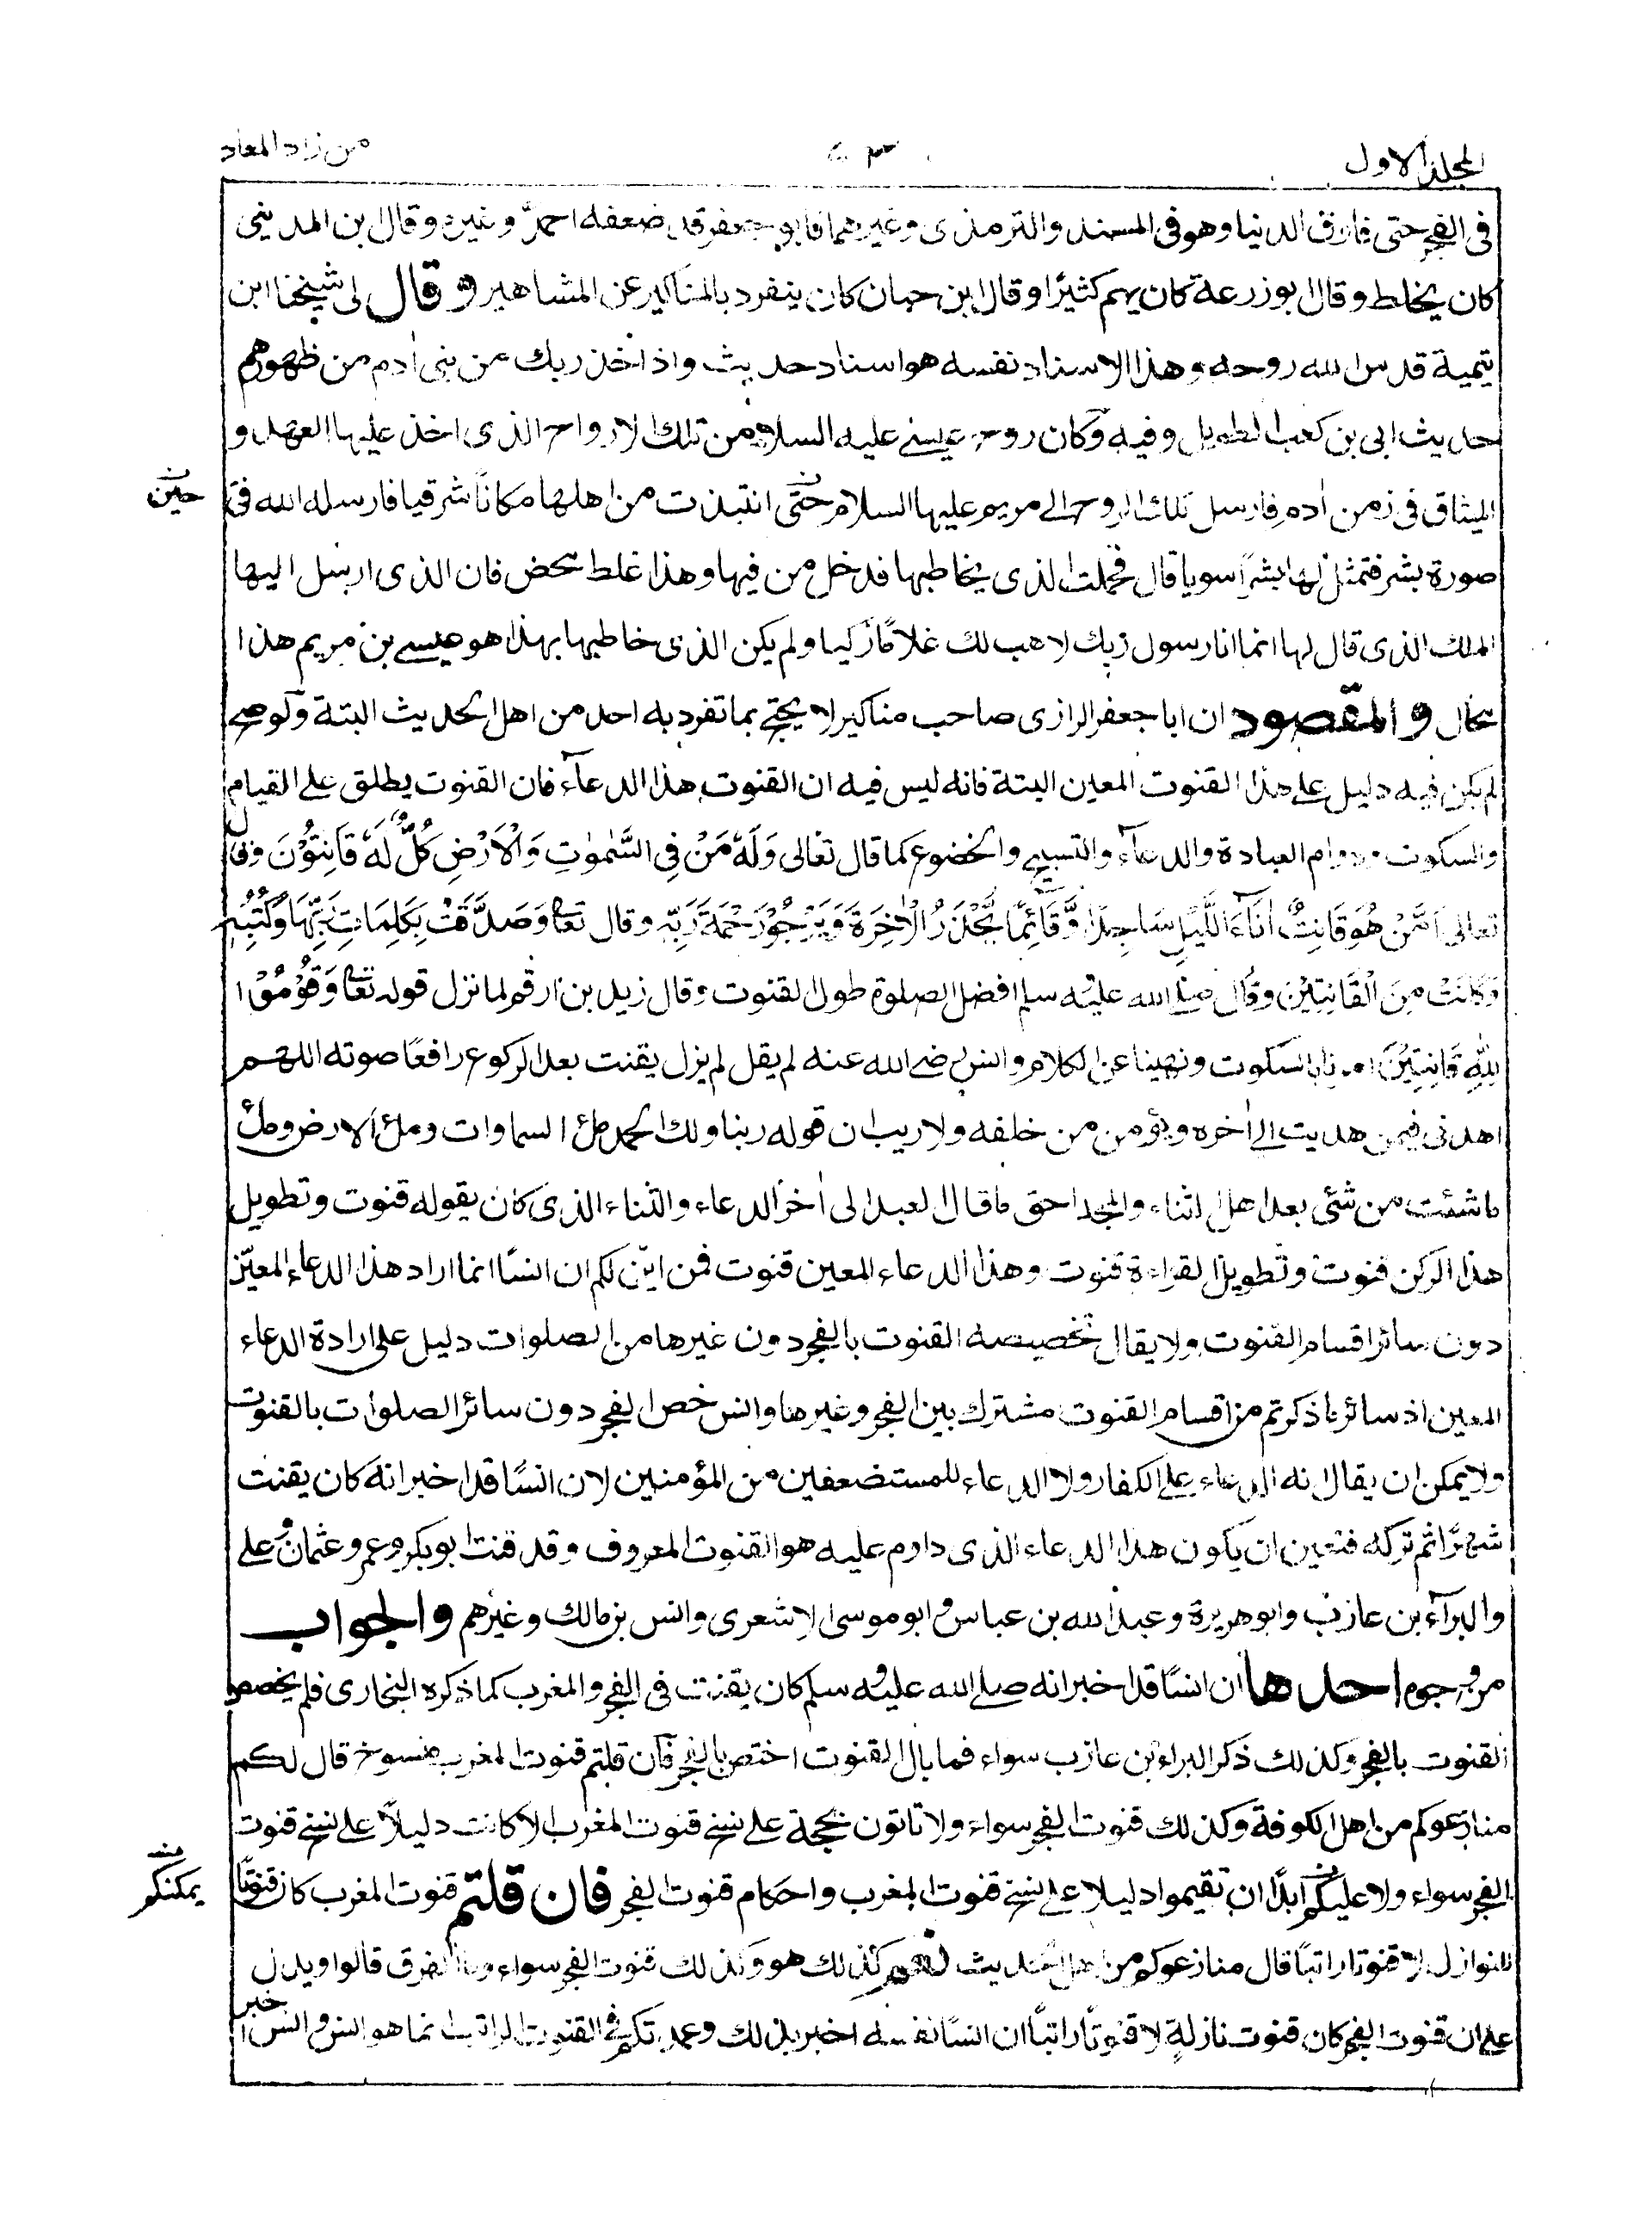 المجلد الاول
من زاد المعاد
فى الفجر حتى فارق الدنيا وهو فى المسند والترمذى وغيرهما فابو جعفر قد ضعفه احمد وغيره وقال ابن المدينى
كان يخلط وقال ابو زرعة كان يهم كثيرًا وقال ابن حبان كان ينفرد بالمناكير عن المشاهير وقال لى شيخنا ابن
تيمية قدس الله روحه وهذا الاسناد نفسه هو اسناد حديث واذ اخذ ربك من بنى اٰدم من ظهورهم
حديث ابى بن كعب الطويل وفيه وكان روح عيسے عليه السلام من تلك الارواح الذى اخذ عليها العهد و
الميثاق فى زمن اٰدم فارسل تلك الروح الے مريم عليها السلام حتى انتبذت من اهلها مكانًا شرقيا فارسله الله فى
حين
صورة بشر فتمثل لها بشرًا سويا قال فحملت الذى يخاطبها فدخل من فيها وهذا غلط محض فان الذى ارسل اليها
الملك الذى قال لها انما انا رسول ربك لاهب لك غلامًا زكيا ولم يكن الذى خاطبها بهذا هو عيسے بن مريم هذا
محال والمقصود ان ابا جعفر الرازى صاحب مناكير لا يحتج بما تفرد به احد من اهل الحديث البتة ولو صح
لم يكن فيه دليل علے هذا القنوت المعين البتة فانه ليس فيه ان القنوت هذا الدعاء فان القنوت يطلق علے القيام
والسكوت ودوام العبادة والدعاء والتسبيح والخضوع كما قال تعالى وَلَهٗ مَنْ فِى السَّمٰوٰتِ وَالْاَرْضِ كُلٌّ لَهٗ قَانِتُوْنَ وقال
تعالى اَمَّنْ هُوَ قَانِتٌ اٰنَاءَ اللَّيْلِ سَاجِدًا وَّقَائِمًا يَّحْذَرُ الْاٰخِرَةَ وَيَرْجُوْ رَحْمَةَ رَبِّهٖ وقال تعا وَصَدَّقَتْ بِكَلِمَاتِ رَبِّهَا وَكُتُبِهٖ
وَكَانَتْ مِنَ الْقَانِتِيْنَ وقال صلے الله عليه وسلم افضل الصلوة طول القنوت وقال زيد بن ارقم لما نزل قوله تعا وَقُوْمُوْا
لِلّٰهِ قَانِتِيْنَ امرنا بالسكوت ونهينا عن الكلام وانس رضے الله عنه لم يقل لم يزل يقنت بعد الركوع رافعًا صوته اللهم
اهدنى فيمن هديت الے اٰخره ويؤمن من خلفه ولا ريب ان قوله ربنا ولك الحمد ملأ السماوات وملأ الارض وملأ
ما شئت من شئ بعد اهل الثناء والمجد احق ما قال العبد الى اٰخر الدعاء والثناء الذى كان يقوله قنوت وتطويل
هذا الركن قنوت وتطويل القراءة قنوت وهذا الدعاء المعين قنوت فمن اين لكم ان انسًا انما اراد هذا الدعاء المعين
دون سائر اقسام القنوت ولا يقال تخصيصه القنوت بالفجر دون غيرها من الصلوات دليل على ارادة الدعاء
المعين اذ سائر ما ذكرتم من اقسام القنوت مشترك بين الفجر وغيرها وانس خص الفجر دون سائر الصلوات بالقنوت
ولا يمكن ان يقال انه الدعاء علے الكفار ولا الدعاء للمستضعفين من المؤمنين لان انسًا قد اخبر انه كان يقنت
شهرًا ثم تركه فتعين ان يكون هذا الدعاء الذى داوم عليه هو القنوت المعروف وقد قنت ابو بكر وعمر وعثمان وعلے
والبراء بن عازب وابو هريرة وعبد الله بن عباس وابو موسى الاشعرى وانس بن مالك وغيرهم والجواب
من وجوه احدها ان انسًا قد اخبر انه صلے الله عليه وسلم كان يقنت فى الفجر والمغرب كما ذكره البخارى فلم يخصص
القنوت بالفجر وكذلك ذكر البراء بن عازب سواء فما بال القنوت اختص بالفجر فان قلتم قنوت المغرب منسوخ قال لكم
منازعوكم من اهل الكوفة وكذلك قنوت الفجر سواء ولا تاتون بحجة علے نسخ قنوت المغرب الا كانت دليلًا علے نسخ قنوت
الفجر سواء ولا عليكم ابدًا ان تقيموا دليلا علے نسخ قنوت المغرب واحكام قنوت الفجر فان قلتم قنوت المغرب كان قنوتًا
يمكنكم
للنوازل لا قنوتا راتبًا قال منازعوكم من اهل الحديث نعم كذلك هو وكذلك قنوت الفجر سواء وما الفرق قالوا ويدل
علے ان قنوت الفجر كان قنوت نازلةٍ لا قنوتًا راتبًا ان انسًا نفسه اخبر بذلك وعمدتكم فى القنوت الراتب انما هو انس وانس اخبر